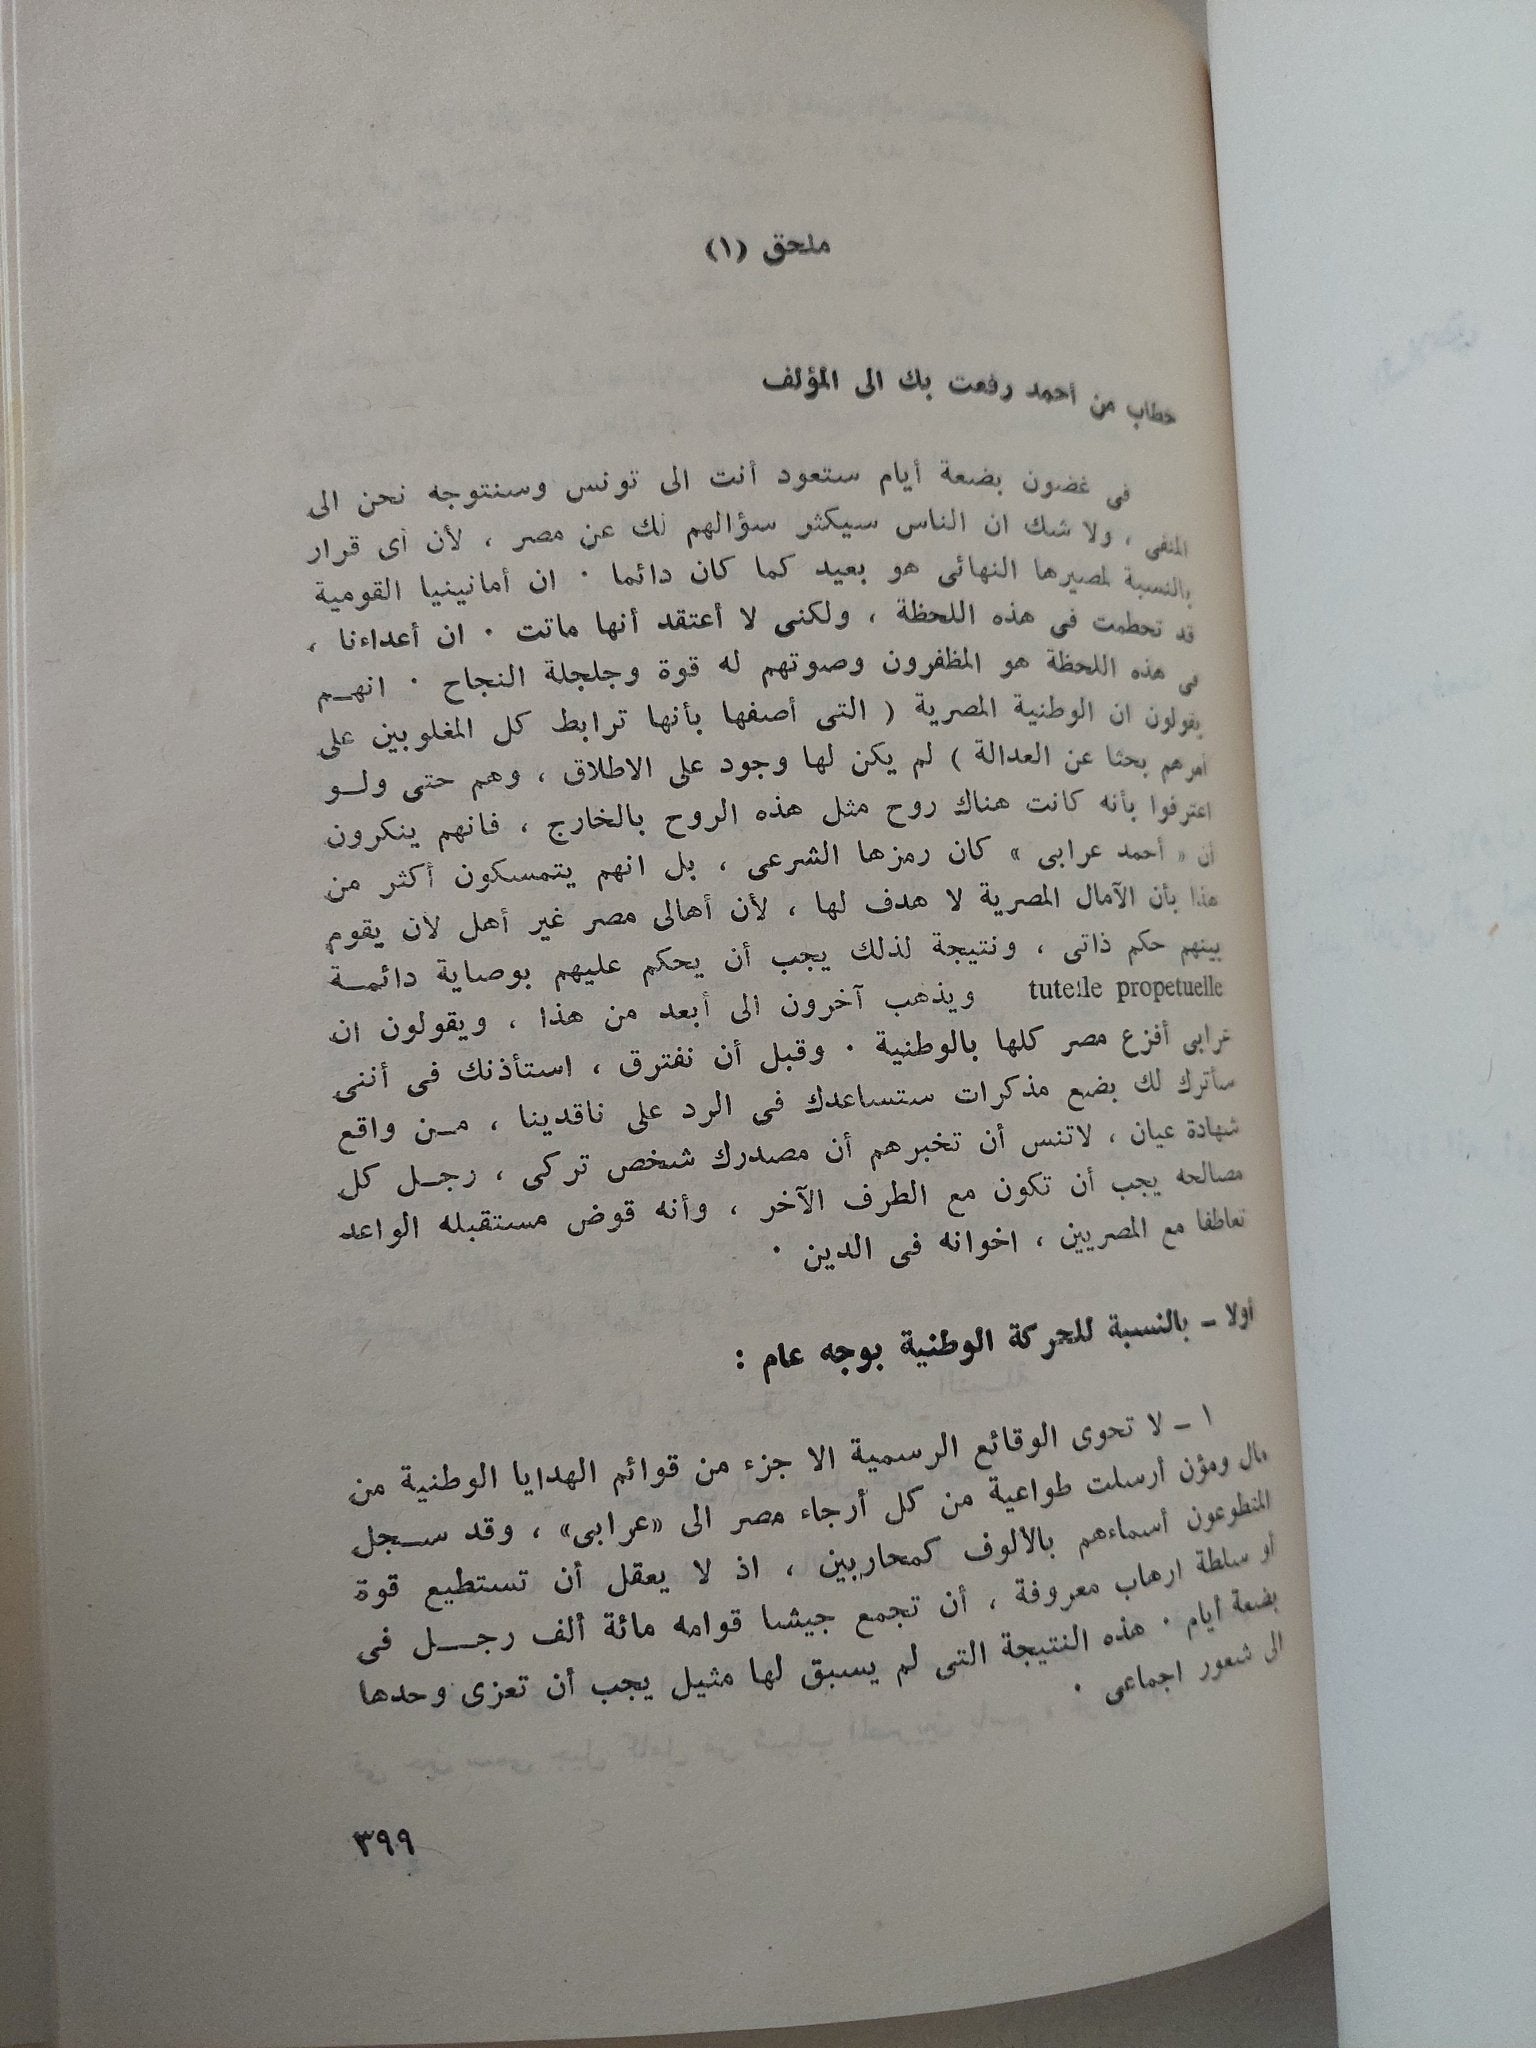 ملحق (١)
خطاب من أحمد رفعت بك الى المؤلف
فى غضون بضعة أيام ستعود أنت الى تونس وسنتوجه نحن الى
المنفى ، ولا شك ان الناس سيكثر سؤالهم لك عن مصر ، لأن أى قرار
بالنسبة لمصيرها النهائى هو بعيد كما كان دائما . ان أمانينيا القومية
قد تحطمت فى هذه اللحظة ، ولكنى لا أعتقد أنها ماتت . ان أعداءنا ،
فى هذه اللحظة هو المظفرون وصوتهم له قوة وجلجلة النجاح . انهم
يقولون ان الوطنية المصرية ( التى أصفها بأنها ترابط كل المغلوبين على
أمرهم بحثا عن العدالة ) لم يكن لها وجود على الاطلاق ، وهم حتى ولو
اعترفوا بأنه كانت هناك روح مثل هذه الروح بالخارج ، فانهم ينكرون
أن « أحمد عرابى » كان رمزها الشرعى ، بل انهم يتمسكون أكثر من
هذا بأن الآمال المصرية لا هدف لها ، لأن أهالى مصر غير أهل لأن يقوم
بينهم حكم ذاتى ، ونتيجة لذلك يجب أن يحكم عليهم بوصاية دائمة
tutelle propetuelle ويذهب آخرون الى أبعد من هذا ، ويقولون ان
عرابى أفزع مصر كلها بالوطنية . وقبل أن نفترق ، استأذنك فى أننى
سأترك لك بضع مذكرات ستساعدك فى الرد على ناقدينا ، من واقع
شهادة عيان ، لاتنس أن تخبرهم أن مصدرك شخص تركى ، رجل كل
مصالحه يجب أن تكون مع الطرف الآخر ، وأنه قوض مستقبله الواعد
تعاطفا مع المصريين ، اخوانه فى الدين .
أولا – بالنسبة للحركة الوطنية بوجه عام :
١ – لا تحوى الوقائع الرسمية الا جزء من قوائم الهدايا الوطنية من
مال ومؤن أرسلت طواعية من كل أرجاء مصر الى «عرابى» ، وقد سجل
المتطوعون أسماءهم بالألوف كمحاربين ، اذ لا يعقل أن تستطيع قوة
أو سلطة ارهاب معروفة ، أن تجمع جيشا قوامه مائة ألف رجل فى
بضعة أيام . هذه النتيجة التى لم يسبق لها مثيل يجب أن تعزى وحدها
الى شعور اجماعى .
٣٩٩